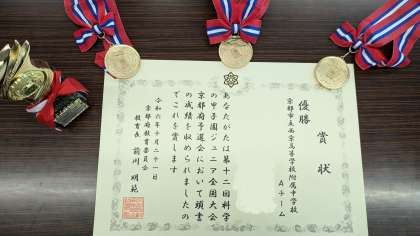 賞状
優勝
京都市立西京高等学校附属中学校
Aチーム
あなたがたは第十二回科学
の甲子園ジュニア全国大会
京都府予選会において頭書
の成績を収められましたの
でこれを賞します
令和六年十月二十一日
京都府教育委員会
教育長 前川 明範